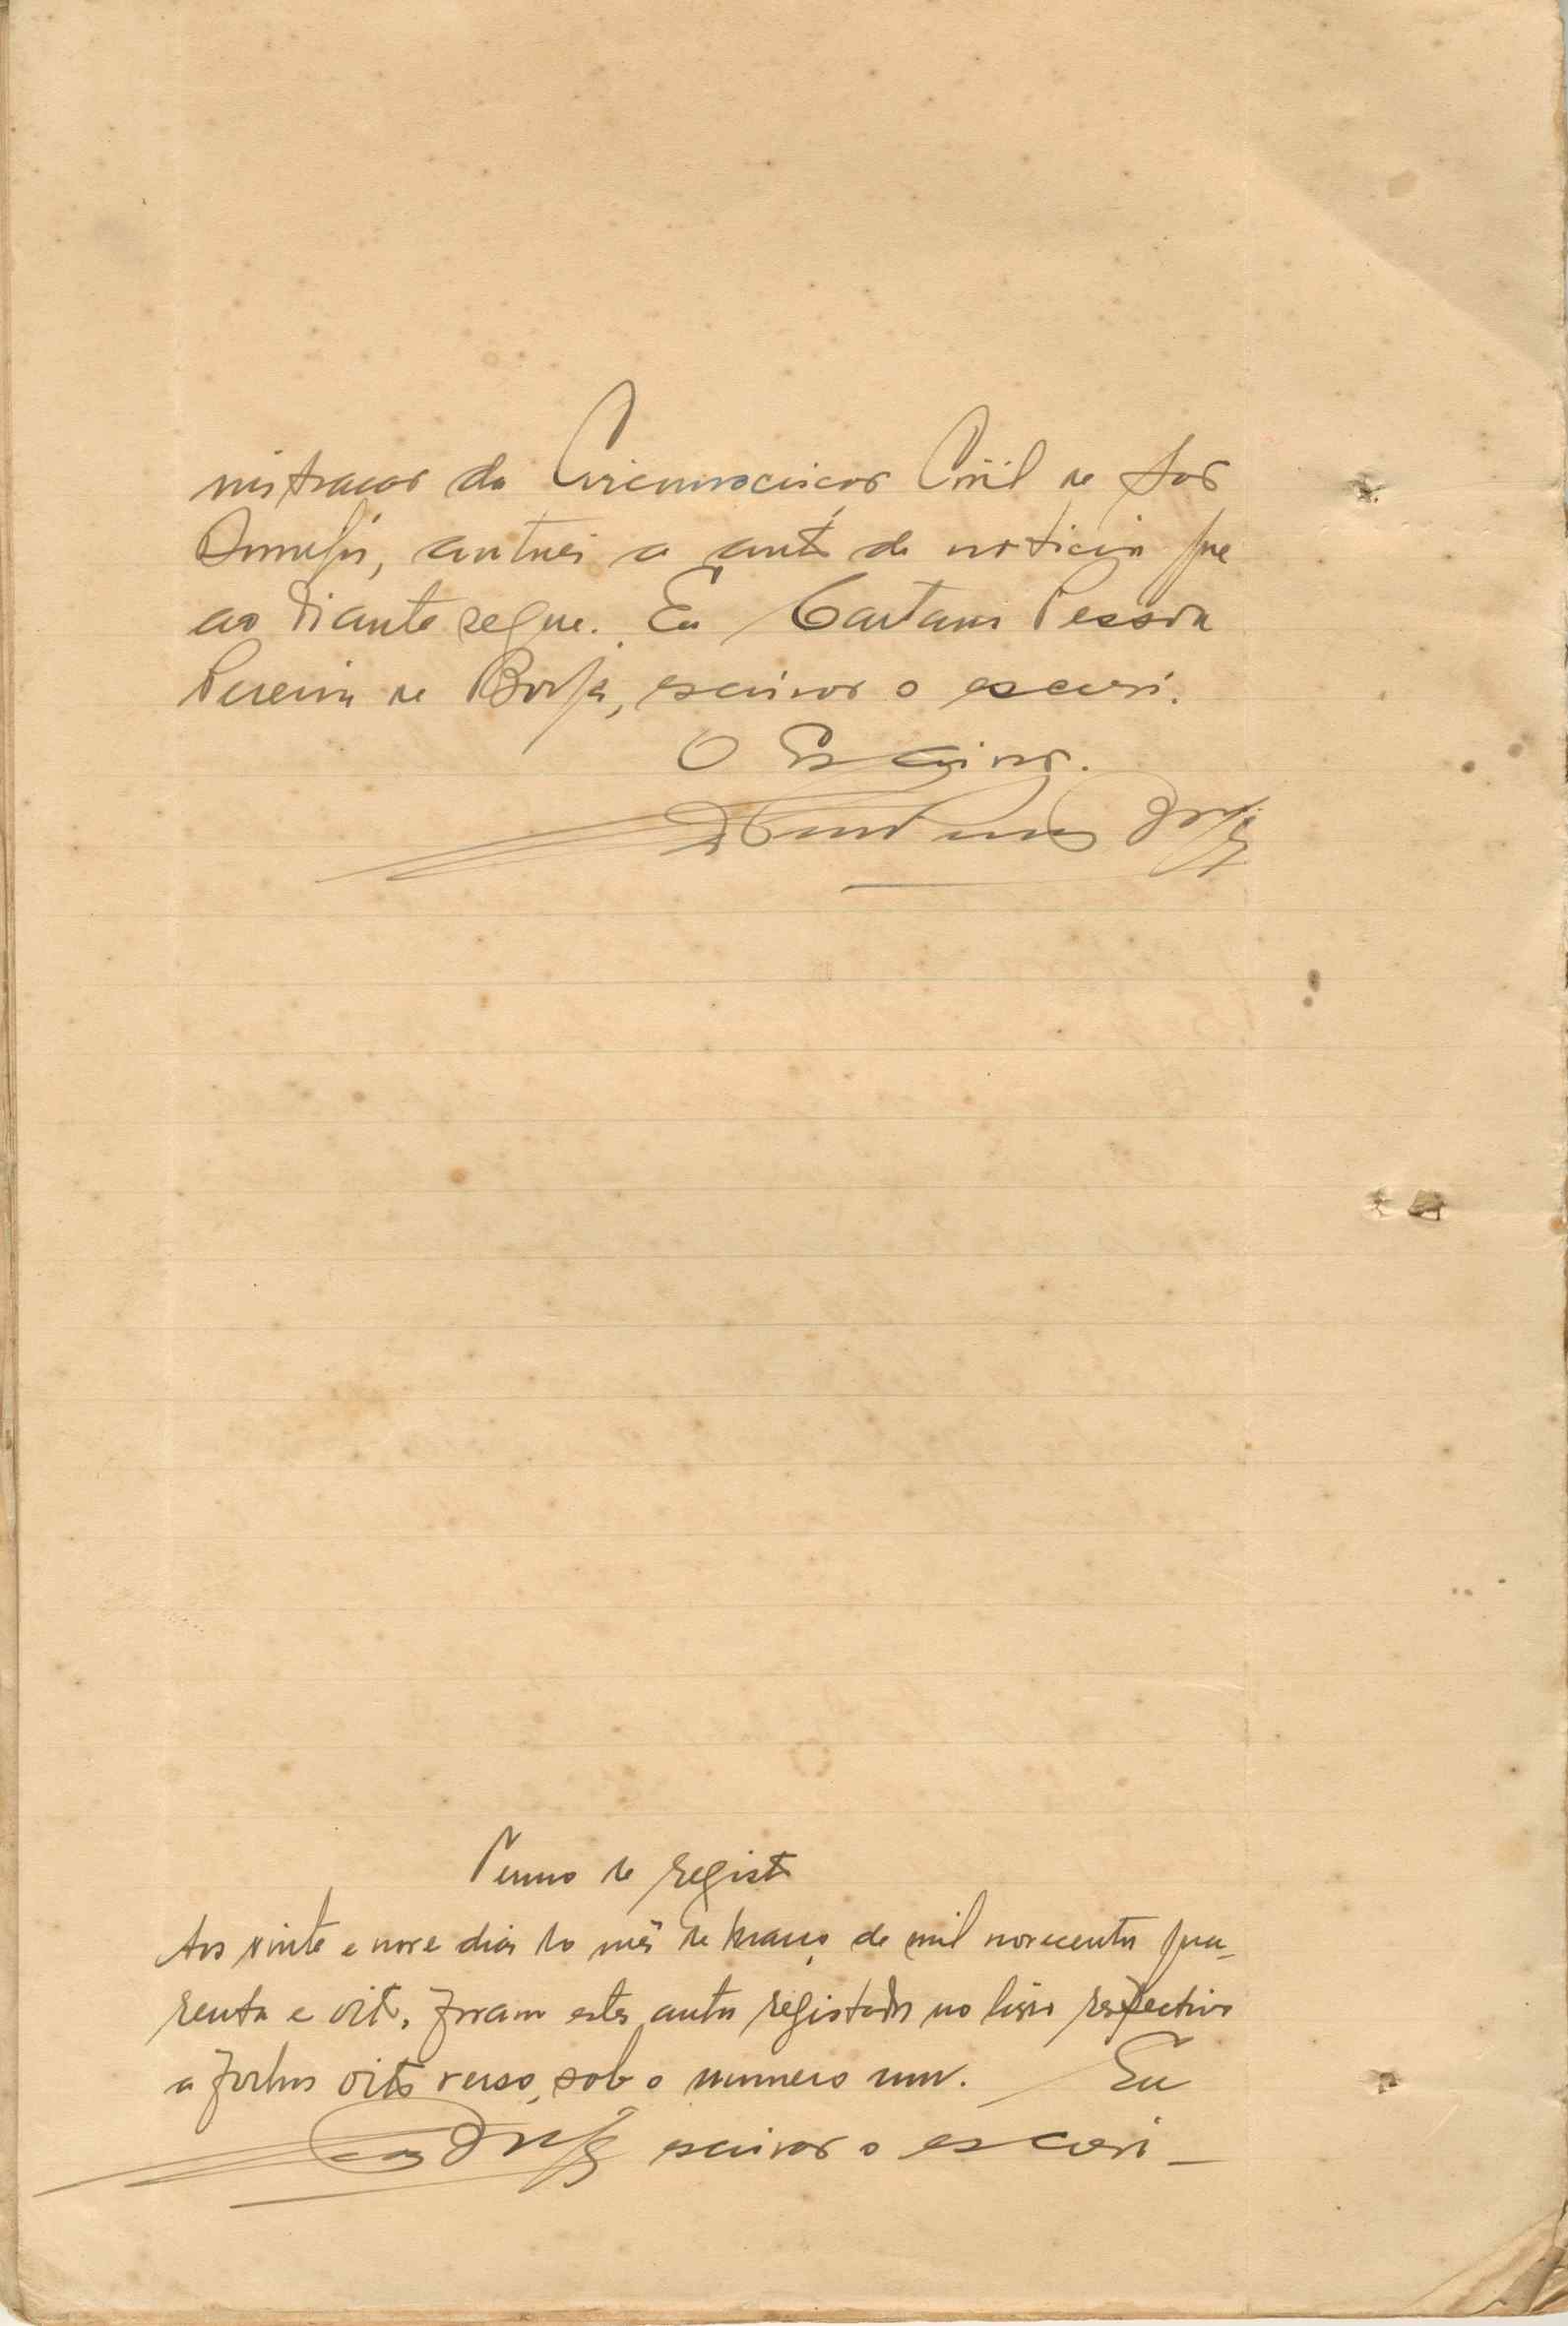 nistração da Circunscrição Civil de São
Domingos, autuei o auto de noticia que
ao diante segue. Eu Caetano Pessoa
Pereira de Borja, escrivão o escrevi.
O Escrivão.
Borja
Termo de registo
Aos vinte e nove dias do mês de março de mil novecentos qua-
renta e oito, foram estes autos registados no livro respectivo
a folhas oito verso, sob o numero um. Eu
Borja escrivão o escrevi -